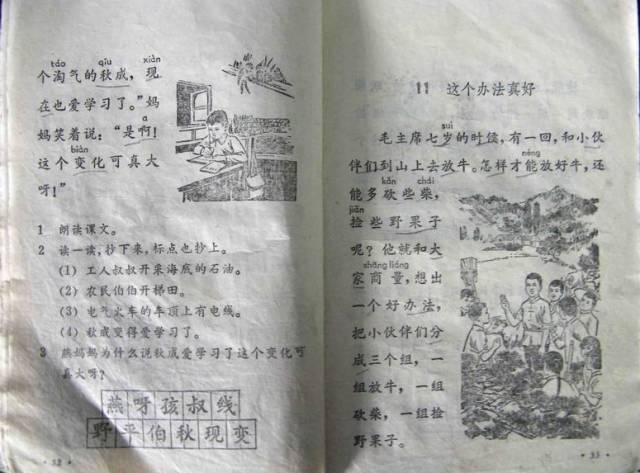 táo qiū xiàn
个淘气的秋成，现
在也爱学习了。”妈
a
妈笑着说：“是啊！
biàn
这个变化可真大
呀！”
1 朗读课文。
2 读一读，抄下来，标点也抄上。
(1) 工人叔叔开采海底的石油。
(2) 农民伯伯开梯田。
(3) 电气火车的车顶上有电线。
(4) 秋成变得爱学习了。
3 燕妈妈为什么说秋成爱学习了这个变化可
真大呀？
燕呀孩叔线
野平伯秋现变
· 52 ·
11 这个办法真好
suì
毛主席七岁的时候，有一回，和小伙
néng
伴们到山上去放牛。怎样才能放好牛，还
kǎn chái
能多砍些柴，
jiǎn
捡些野果子
呢？他就和大
shāng liáng
家商量，想出
一个好办法，
把小伙伴们分
成三个组，一
组放牛，一组
砍柴，一组捡
野果子。
· 53 ·